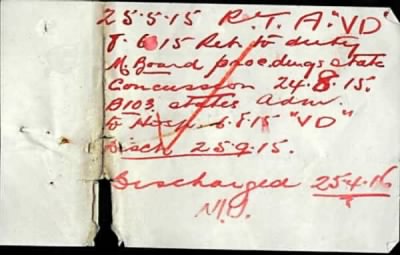 25.5.15 R.T.A. "VD"
8.6.15 Ret. to duty
M. Board proceedings state
Concussion 24.8.15.
B103. states adm.
to Hosp. 6.8.15 "VD"
Disch 25.9.15.
Discharged 25.4.16
M.U.